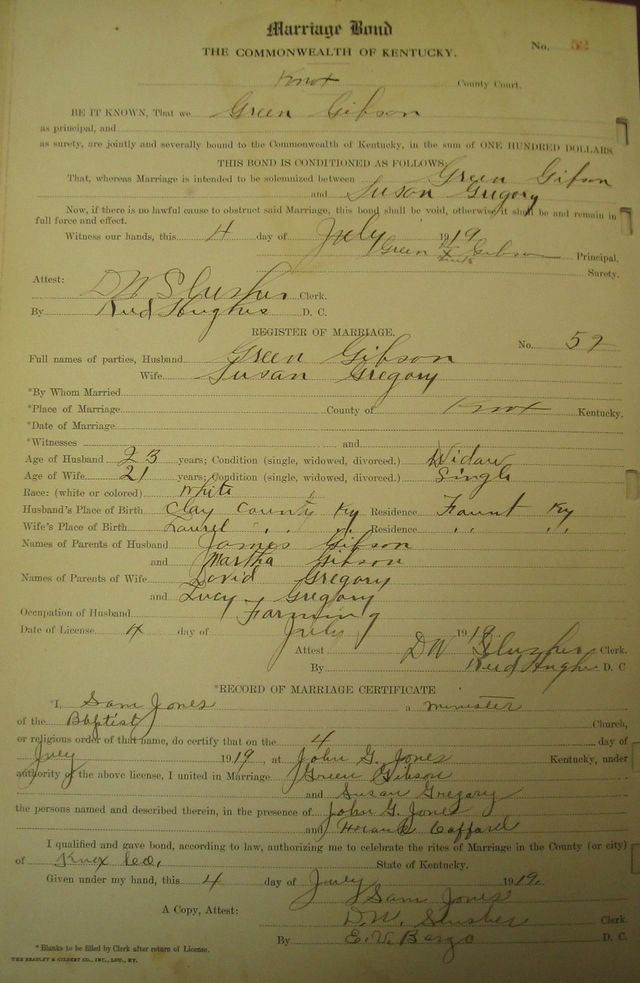 Marriage Bond
THE COMMONWEALTH OF KENTUCKY.
No. 52
Knox County Court.
BE IT KNOWN, That we Green Gibson
as principal, and
as surety, are jointly and severally bound to the Commonwealth of Kentucky, in the sum of ONE HUNDRED DOLLARS
THIS BOND IS CONDITIONED AS FOLLOWS:
That, whereas Marriage is intended to be solemnized between Green Gibson
and Susan Gregory
Now, if there is no lawful cause to obstruct said Marriage, this bond shall be void, otherwise it shall be and remain in
full force and effect.
Witness our hands, this 4 day of July 1919
Green X Gibson Principal.
Surety.
Attest:
D W Slusher Clerk.
By Reed Hughes D. C.
REGISTER OF MARRIAGE.
No. 52
Full names of parties, Husband Green Gibson
Wife Susan Gregory
*By Whom Married
*Place of Marriage County of Knox Kentucky.
*Date of Marriage
*Witnesses and
Age of Husband 23 years; Condition (single, widowed, divorced.) Widow
Age of Wife 21 years; Condition (single, widowed, divorced.) Single
Race: (white or colored) White
Husband's Place of Birth Clay County Ky Residence Fount Ky
Wife's Place of Birth Laurel " " Residence " "
Names of Parents of Husband James Gibson
and Martha Gibson
Names of Parents of Wife David Gregory
and Lucy Gregory
Occupation of Husband Farming
Date of License 4 day of July 1919
Attest D W Slusher Clerk.
By Reed Hughes D. C
*RECORD OF MARRIAGE CERTIFICATE
*I, Sam Jones a minister
of the Baptist Church,
or religious order of that name, do certify that on the 4 day of
July 1919, at John G. Jones Kentucky, under
authority of the above license, I united in Marriage Green Gibson
and Susan Gregory
the persons named and described therein, in the presence of John G. Jones
and
I qualified and gave bond, according to law, authorizing me to celebrate the rites of Marriage in the County (or city)
of Knox Co, State of Kentucky.
Given under my hand, this 4 day of July 1919.
Sam Jones
A Copy, Attest: D. W. Slusher Clerk.
By E. V. Bargo D. C.
*Blanks to be filled by Clerk after return of License.
THE BRADLEY & GILBERT CO., INC., LOU., KY.